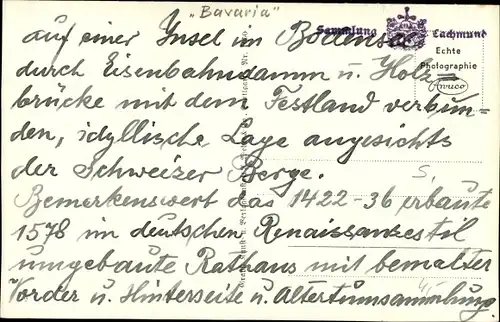 „Bavaria"
auf einer Insel im Bodensee
Sammlung Lachmund
durch Eisenbahndamm u. Holz=
Echte
Photographie
brücke mit dem Festland verbun-
Awuco
den, idyllische Lage angesichts
der Schweizer Berge.
Bemerkenswert das 1422-36 erbaute
1578 im deutschen Renaissancestil
umgebaute Rathaus mit bemalter
Vorder u. Hinterseite u. Altertumsammlung.